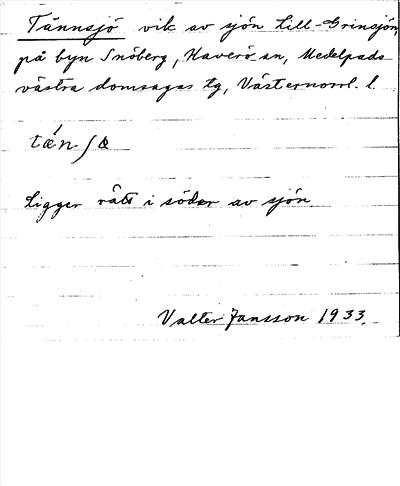 Tännsjö vik av sjön Lill-Grinsjön,
på byn Snöberg, Haverö sn, Medelpads
västra domsagas tg, Västernorrl. l.
Ligger rätt i söder av sjön
Valter Jansson 1933.